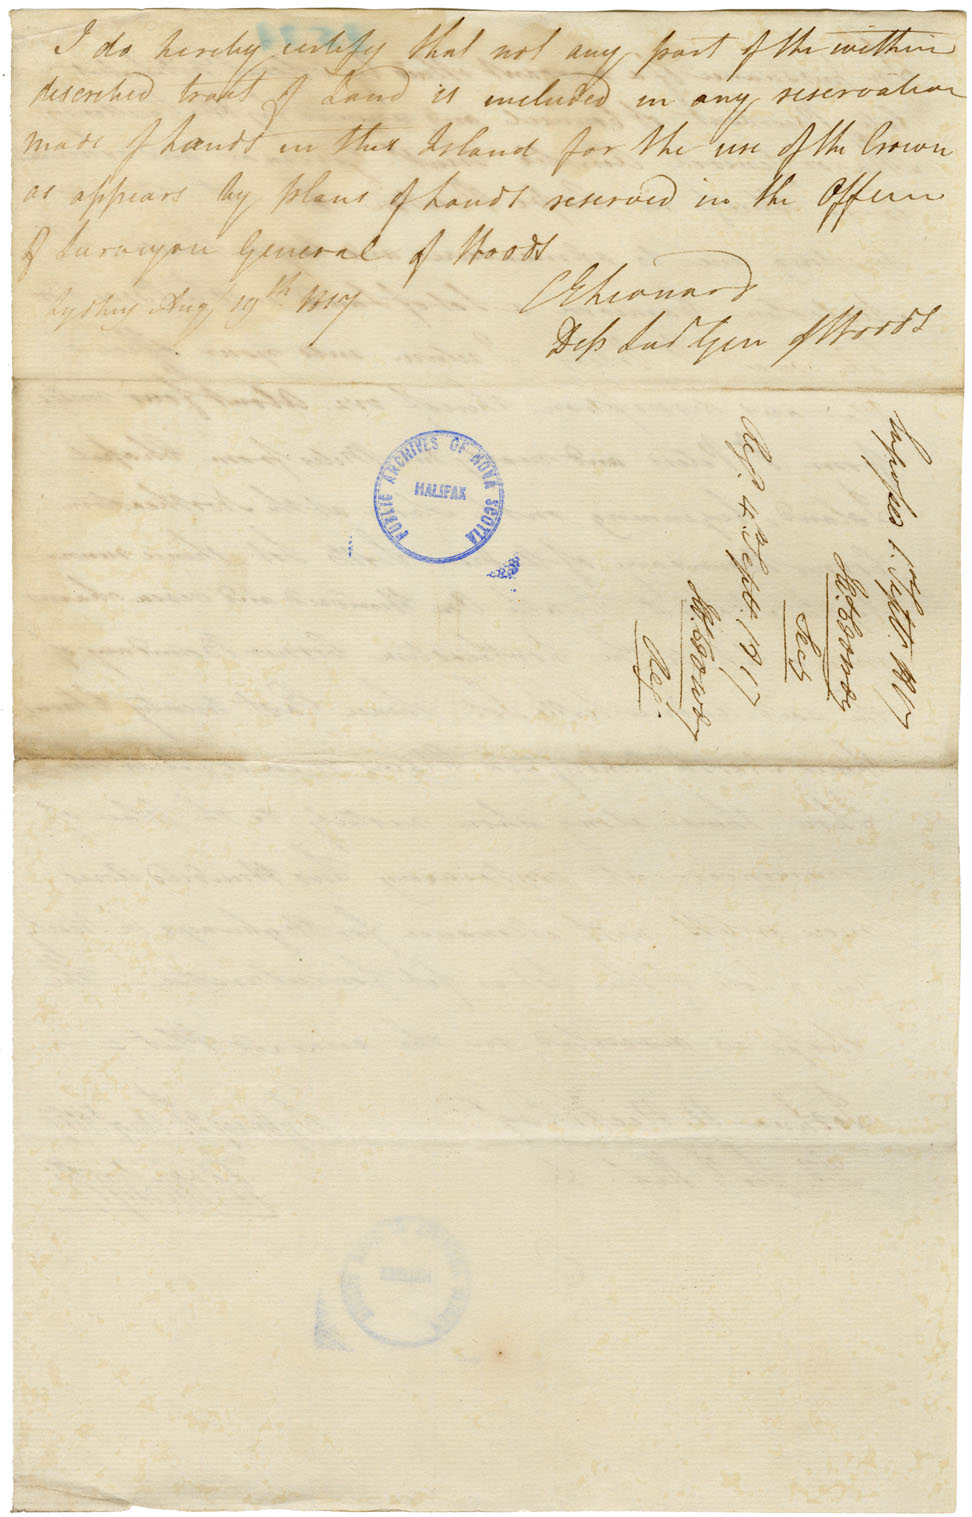 I do hereby certify that not any part of the within
described tract of Land is included in any reservation
made of Lands in this Island for the use of the Crown
as appears by plans of Lands reserved in the Office
of Surveyor General of Woods
Sydney Aug 19th 1817
C E Leonard
Dep Sur Gen of Woods
PUBLIC ARCHIVES OF NOVA SCOTIA
HALIFAX
1st Septr. 1817
Secy
Reg. 4th Septr. 1817
Reg.